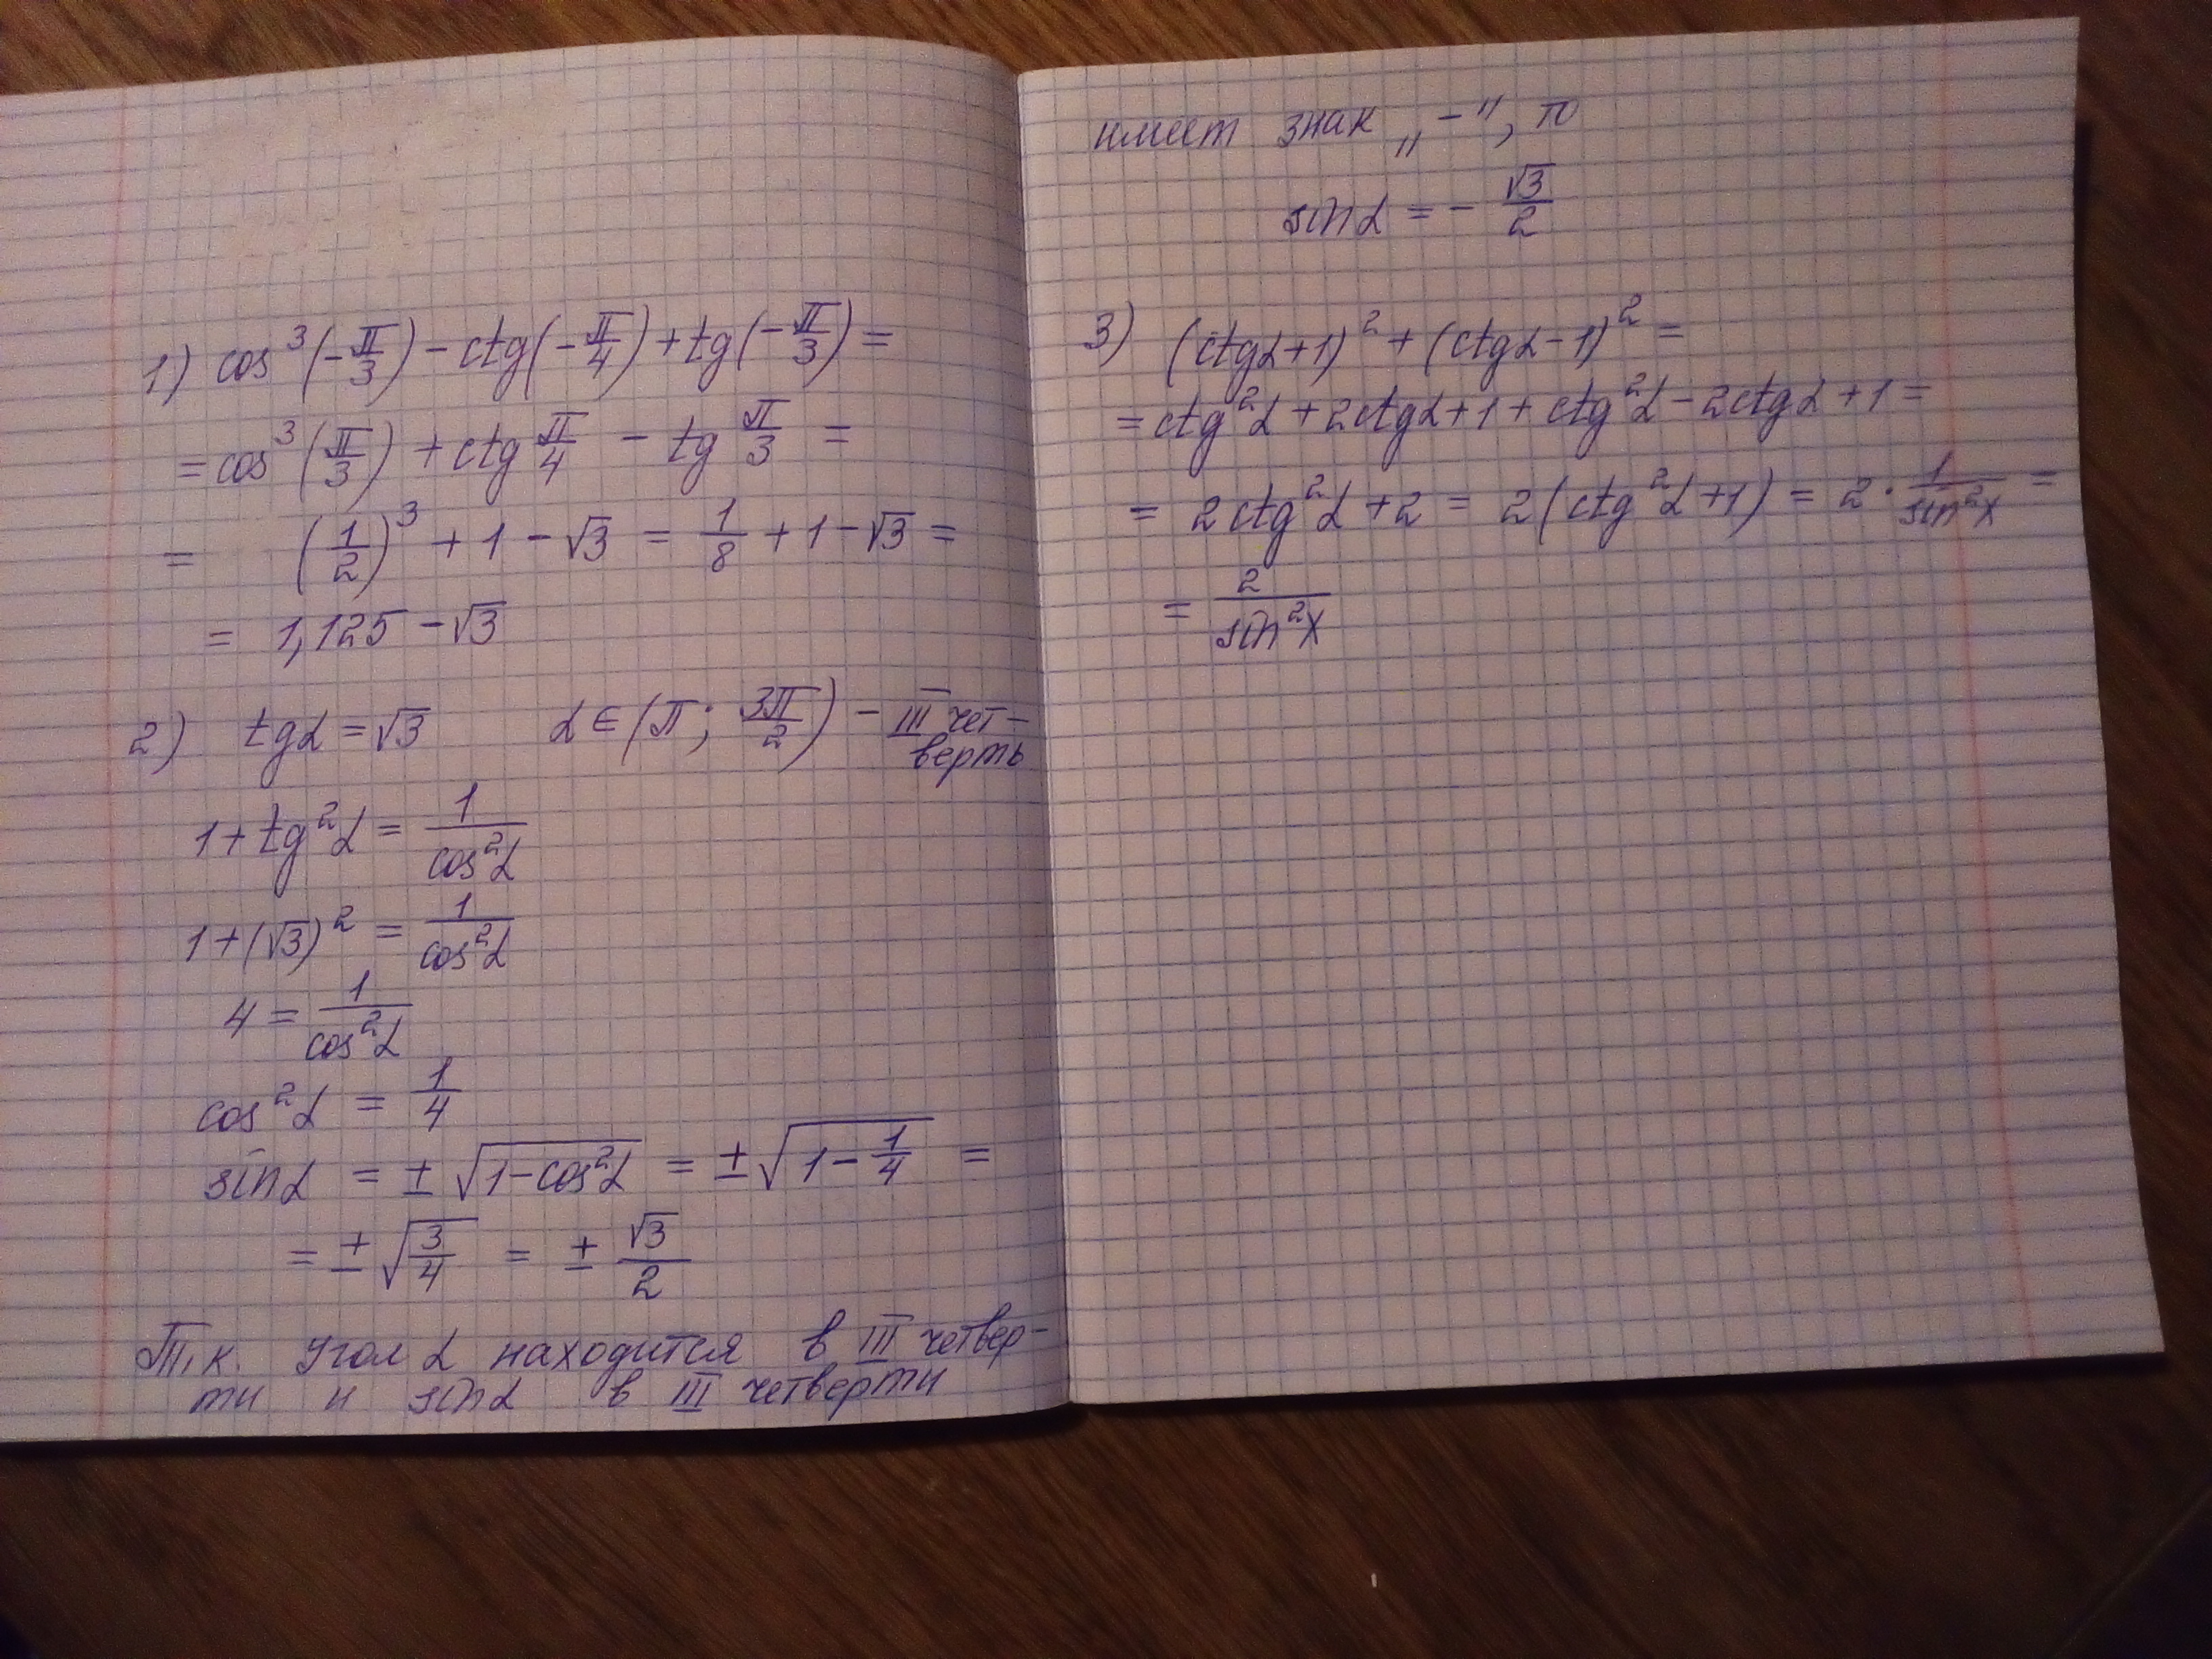 1) cos³(-π/3) - ctg(-π/4) + tg(-π/3) =
= cos³(π/3) + ctg π/4 - tg π/3 =
= (1/2)³ + 1 - √3 = 1/8 + 1 - √3 =
= 1,125 - √3
2) tgα = √3 α ∈ (π; 3π/2) - III чет-
верть
1 + tg²α = 1/cos²α
1 + (√3)² = 1/cos²α
4 = 1/cos²α
cos²α = 1/4
sinα = ± √(1-cos²α) = ± √(1 - 1/4) =
= ± √(3/4) = ± √3/2
Т.к. угол α находится в III четвер-
ти и sinα в III четверти
имеет знак „-", то
sinα = - √3/2
3) (ctgα+1)² + (ctgα-1)² =
= ctg²α + 2ctgα + 1 + ctg²α - 2ctgα + 1 =
= 2ctg²α + 2 = 2(ctg²α + 1) = 2 · 1/sin²x =
= 2/sin²x